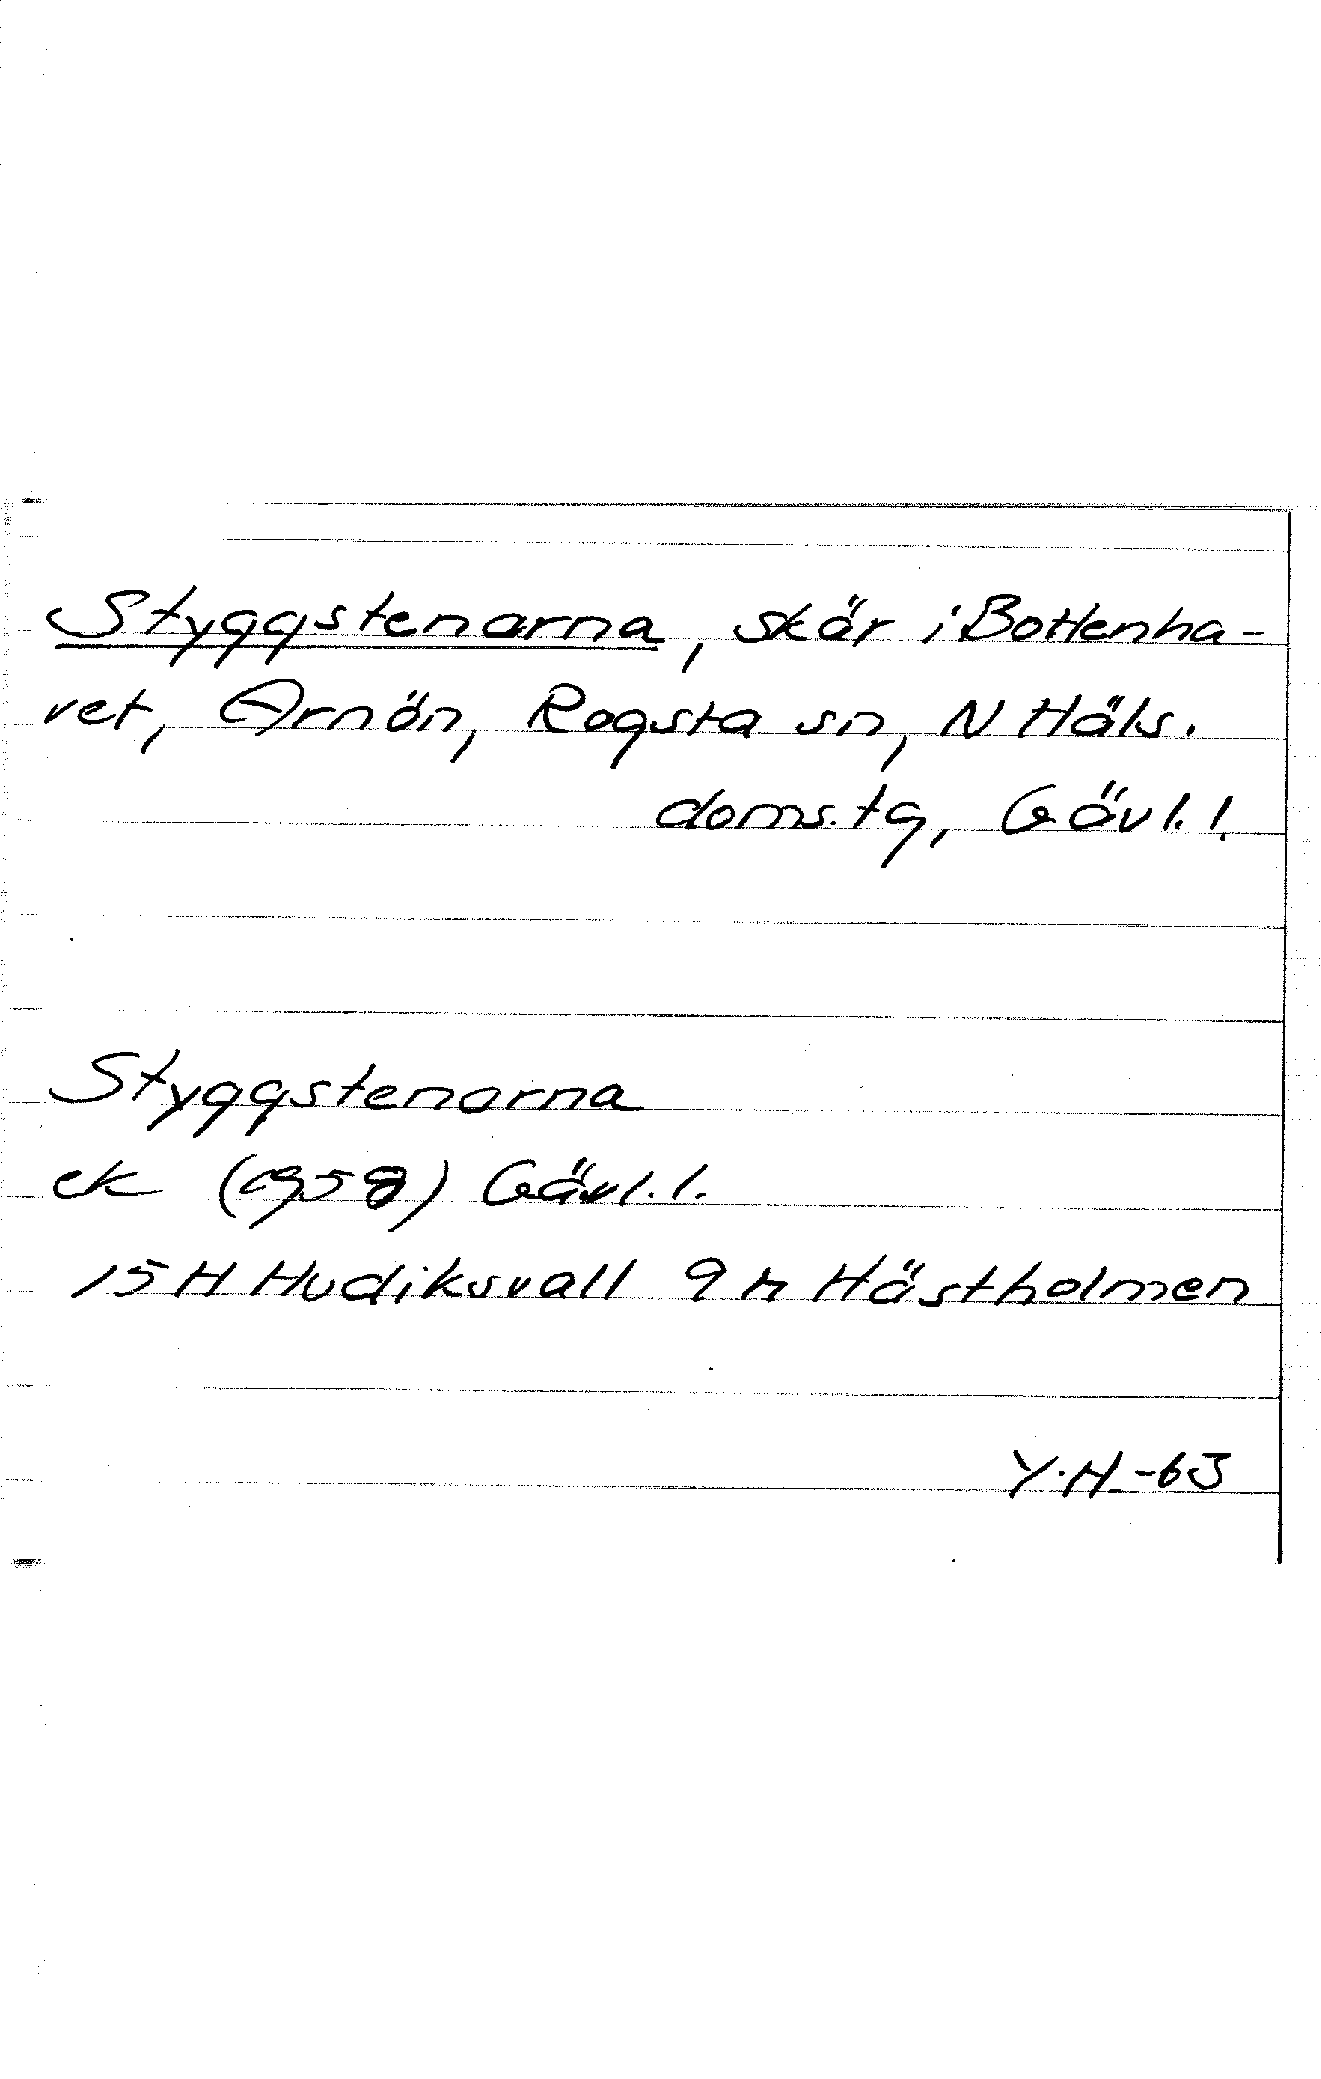 Styggstenarna, skär i Bottenha-
vet, Arnön, Rogsta sn, N Häls.
doms.tg, Gävl.l.
Styggstenarna
ek (1958) Gävl.l.
15H Hudiksvall 9 h Hästholmen
Y.H.-63